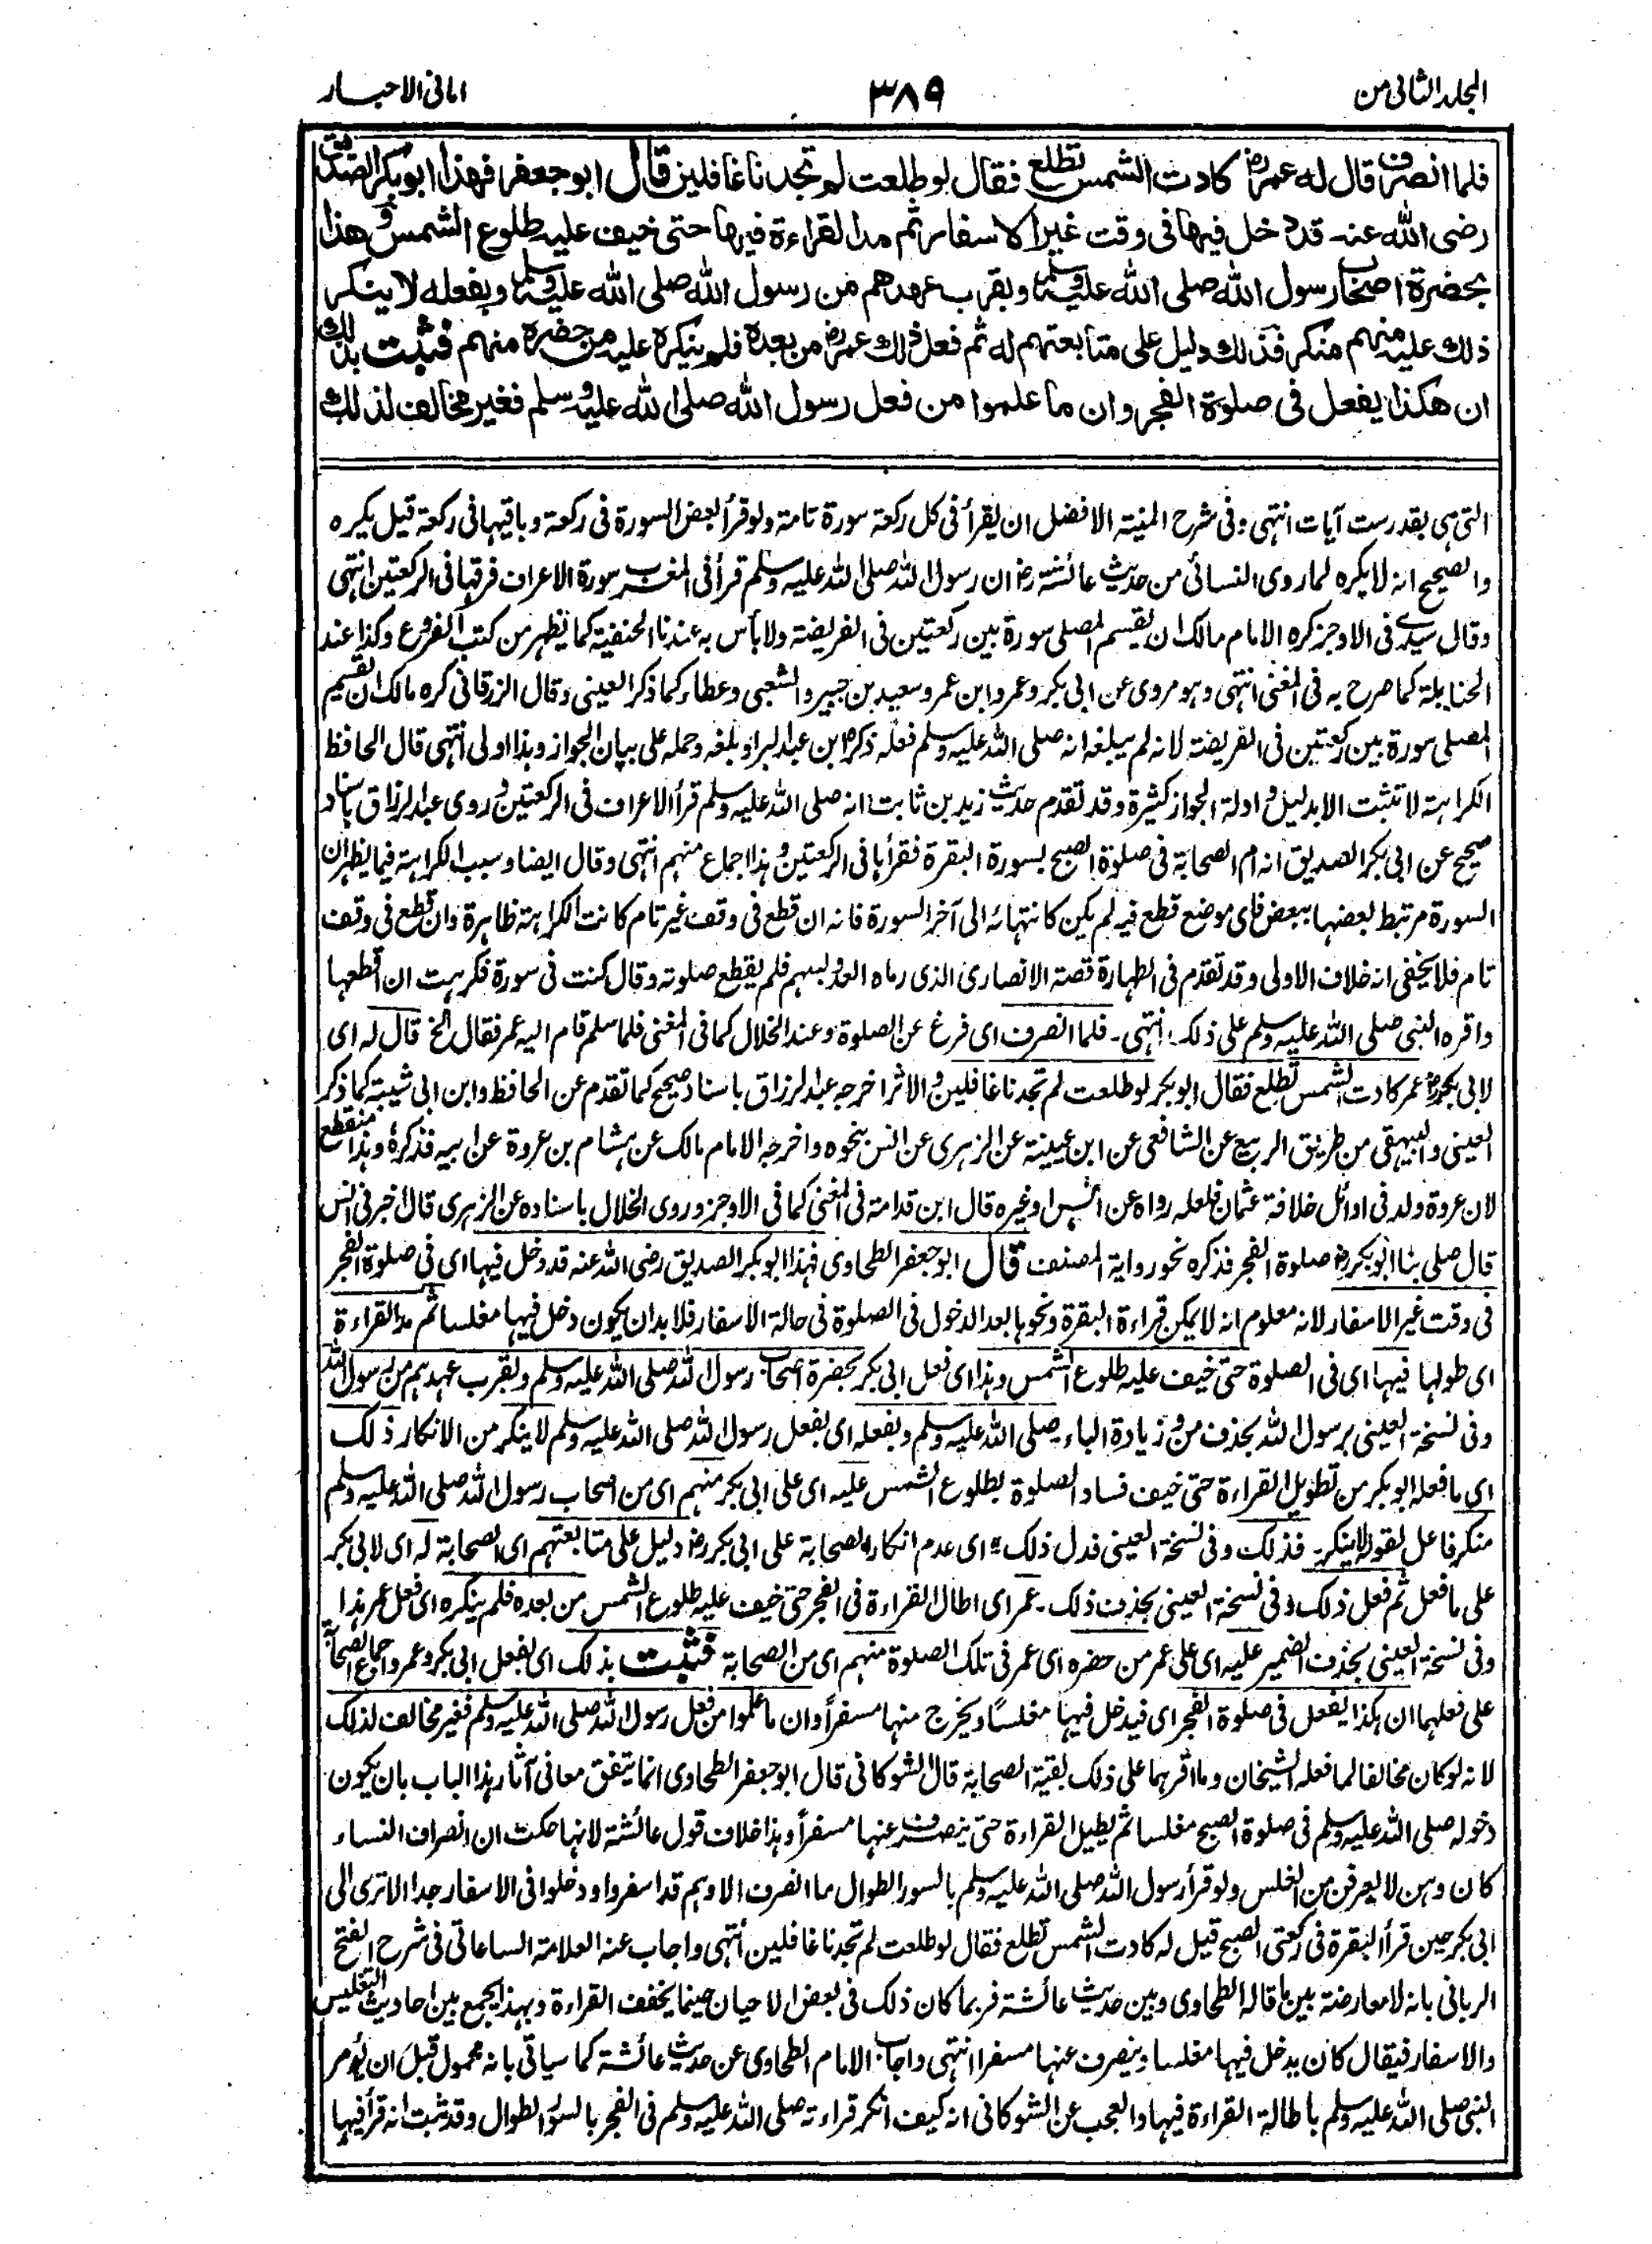 المجلد الثانی من
٣٨٩
امانی الاحبار
فلما انصرف قال له عمرؓ كادت الشمس تطلع فقال لو طلعت لم تجدنا غافلين قال ابو جعفر فهذا ابو بكر الصديق
رضى الله عنه قد دخل فيها فى وقت غير الاسفار ثم مد القراءة فيها حتى خيف عليه طلوع الشمس و هذا
بحضرة اصحاب رسول الله صلى الله عليه وسلم و بقرب عهدهم من رسول الله صلى الله عليه وسلم و بفعله لا ينكر
ذلك عليه منهم منكر فذلك دليل على متابعتهم له ثم فعل ذلك عمرؓ من بعده فلم ينكره عليه من حضره منهم فثبت بذلك
ان هكذا يفعل فى صلوة الفجر وان ما علموا من فعل رسول الله صلى الله عليه وسلم فغير مخالف لذلك
التی ہی بقدر ست آيات انتہی وفی شرح المنیۃ الافضل ان یقرأ فی کل رکعۃ سورۃ تامۃ ولو قرأ بعض السورۃ فی رکعۃ وباقیہا فی رکعۃ قیل یکرہ
والصحیح انہ لا یکرہ لما روی النسائی من حدیث عائشۃ رضؓ ان رسول اللہ صلی اللہ علیہ وسلم قرأ فی المغرب سورۃ الاعراف فرقہا فی الرکعتین انتہی
وقال سیدی فی الاوجز کرہ الامام مالک ان یقسم المصلی سورۃ بین رکعتین فی الفریضۃ ولا بأس بہ عندنا الحنفیۃ کما یظہر من کتب الفروع وکذا عند
الحنابلۃ کما صرح بہ فی المغنی انتہی وہو مروی عن ابی بکر وعمر وابن عمر وسعید بن جبیر والشعبی وعطاء کما ذکر العینی وقال الزرقانی کرہ مالک ان یقسم
المصلی سورۃ بین رکعتین فی الفریضۃ لانہ لم یبلغہ انہ صلی اللہ علیہ وسلم فعلہ ذکرہ ابن عبد البر او بلغہ وحملہ علی بیان الجواز وہذا اولی انتہی قال الحافظ
الکراہۃ لا تثبت الا بدلیل و ادلۃ الجواز کثیرۃ وقد تقدم حدیث زید بن ثابت انہ صلی اللہ علیہ وسلم قرأ الاعراف فی الرکعتین و روی عبد الرزاق باسناد
صحیح عن ابی بکر الصدیق انہ ام الصحابۃ فی صلوۃ الصبح بسورۃ البقرۃ فقرأہا فی الرکعتین و ہذا اجماع منہم انتہی وقال ایضا وسبب الکراہۃ فیما یظہر ان
السورۃ مرتبط بعضہا ببعض فای موضع قطع فیہ لم یکن کانتہائہ الی آخر السورۃ فانہ ان قطع فی وقف غیر تام کانت الکراہۃ ظاہرۃ وان قطع فی وقف
تام فلا یخفی انہ خلاف الاولی وقد تقدم فی الطہارۃ قصۃ الانصاری الذی رماہ العدو بسہم فلم یقطع صلوتہ وقال کنت فی سورۃ فکرہت ان اقطعہا
واقرہ النبی صلی اللہ علیہ وسلم علی ذلک انتہی۔ فلما انصرف ای فرغ عن الصلوۃ وعند الخلال کما فی المغنی فلما سلم قام الیہ عمر فقال الخ قال لہ ای
لابی بکرؓ عمر کادت الشمس تطلع فقال ابو بکر لو طلعت لم تجدنا غافلین و الاثر اخرجہ عبد الرزاق باسناد صحیح کما تقدم عن الحافظ وابن ابی شیبۃ کما ذکر
العینی والبیہقی من طریق الربیع عن الشافعی عن ابن عیینۃ عن الزہری عن انس بنحوہ واخرجہ الامام مالک عن ہشام بن عروۃ عن ابیہ فذکرہ وہذا منقطع
لان عروۃ ولد فی اوائل خلافۃ عثمان فلعلہ رواہ عن انس او غیرہ قال ابن قدامۃ فی المغنی کما فی الاوجز وروی الخلال باسنادہ عن الزہری قال اخبرنی انس
قال صلی بنا ابو بکر رضؓ صلوۃ الفجر فذکرہ نحو روایۃ المصنف قال ابو جعفر الطحاوی فہذا ابو بکر الصدیق رضی اللہ عنہ قد دخل فیہا ای فی صلوۃ الفجر
فی وقت غیر الاسفار لانہ معلوم انہ لا یمکن قراءۃ البقرۃ ونحوہا بعد الدخول فی الصلوۃ فی حالۃ الاسفار فلا بد ان یکون دخل فیہا مغلسا ثم مد القراءۃ
ای طولہا فیہا ای فی الصلوۃ حتی خیف علیہ طلوع الشمس وہذا ای فعل ابی بکر بحضرۃ اصحاب رسول اللہ صلی اللہ علیہ وسلم وبقرب عہدہم من رسول اللہ
وفی نسخۃ العینی برسول اللہ بحذف من و زیادۃ الباء صلی اللہ علیہ وسلم وبفعلہ ای بفعل رسول اللہ صلی اللہ علیہ وسلم لا ینکر من الانکار ذلک
ای ما فعلہ ابو بکر من تطویل القراءۃ حتی خیف فساد الصلوۃ بطلوع الشمس علیہ ای علی ابی بکر منہم ای من اصحاب رسول اللہ صلی اللہ علیہ وسلم
منکر فاعل لقولہ لا ینکر۔ فذلک وفی نسخۃ العینی فدل ذلک ای عدم انکار الصحابۃ علی ابی بکر رضؓ دلیل علی متابعتہم ای الصحابۃ لہ ای لابی بکر
علی ما فعل ثم فعل ذلک وفی نسخۃ العینی بحذف ذلک۔ عمر ای اطال القراءۃ فی الفجر حتی خیف علیہ طلوع الشمس من بعدہ فلم ینکرہ ای فعل عمر ہذا
وفی نسخۃ العینی بحذف الضمیر علیہ ای علی عمر من حضرہ ای عمر فی تلک الصلوۃ منہم ای من الصحابۃ فثبت بذلک ای بفعل ابی بکر وعمر واجماع الصحابۃ
علی فعلہما ان ہکذا یفعل فی صلوۃ الفجر ای فیدخل فیہا مغلساً ویخرج منہا مسفراً وان ما علموا من فعل رسول اللہ صلی اللہ علیہ وسلم فغیر مخالف لذلک
لانہ لو کان مخالفا لما فعلہ الشیخان وما اقرہما علی ذلک بقیۃ الصحابۃ قال الشوکانی قال ابو جعفر الطحاوی انما یتفق معانی آثار ہذا الباب بان یکون
دخولہ صلی اللہ علیہ وسلم فی صلوۃ الصبح مغلسا ثم یطیل القراءۃ حتی ینصرف عنہا مسفراً وہذا خلاف قول عائشۃ لانہا حکت ان انصراف النساء
کان وہن لا یعرفن من الغلس ولو قرأ رسول اللہ صلی اللہ علیہ وسلم بالسور الطوال ما انصرف الا وہم قد اسفروا ودخلوا فی الاسفار جدا الا تری الی
ابی بکر حین قرأ البقرۃ فی رکعتی الصبح قیل لہ کادت الشمس تطلع فقال لو طلعت لم تجدنا غافلین انتہی واجاب عنہ العلامۃ الساعاتی فی شرح الفتح
الربانی بانہ لا معارضۃ بین ما قالہ الطحاوی وبین حدیث عائشۃ فربما کان ذلک فی بعض الاحیان حینما یخفف القراءۃ وبہذا یجمع بین احادیث التغلیس
والاسفار فیقال کان یدخل فیہا مغلسا وینصرف عنہا مسفرا انتہی واجاب الامام الطحاوی عن حدیث عائشۃ کما سیاتی بانہ محمول قبل ان یؤمر
النبی صلی اللہ علیہ وسلم باطالۃ القراءۃ فیہا والعجب عن الشوکانی انہ کیف انکر قراءتہ صلی اللہ علیہ وسلم فی الفجر بالسور الطوال وقد ثبت انہ قرأ فیہا